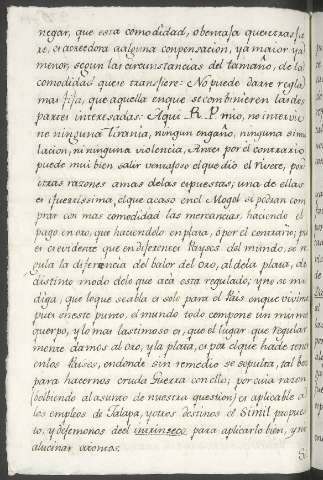 negar, que esta comodidad, o bentaja que
re, es acreedora a alguna conpensacion, ya maior ya
menor, segun las circunstancias del tamaño, de la
comodidad que se transfiere: No puede darse regla
mas fija, que aquella en que se combinieren las dos
partes interesadas. Aqui R. P. mio, no intervie
ne ninguna tirania, ningun engaño, ninguna simu
lacion, ni ninguna violencia, Antes por el contrario
puede mui bien salir ventajoso el que dio el
otras razones amas de las expuestas; una de ellas
es el que acaso en el Mogol se podran com
prar con mas comodidad las mercancias, haciendo el
pago en oro, que haciendolo en plata, o por el contrario; pu
es es evidente que en diferentes Payses del mundo, se re
gula la diferencia del balor del oro, al de la plata, de
distinto modo de lo que acá esta regulado; y no se me
diga, que lo que se abla es solo para el Pais en que vivimos
pues en este punto, el mundo todo compone un mismo
querpo, y lo mas lastimoso es, que el lugar que regular
mente damos al oro, y la plata, es por el que hace tene
en los Paises, en donde sin remedio se sepulta, tal bez
para hacernos cruda Guerra con ello; por cuia razon
(bolbiendo al asunto de nuestra question) es aplicable a
los empleos de Jalapa, y otros destinos el Simil pupues
to, y dejemonos de el intrinseco para aplicarlo bien, y no
alucinar a tontos.